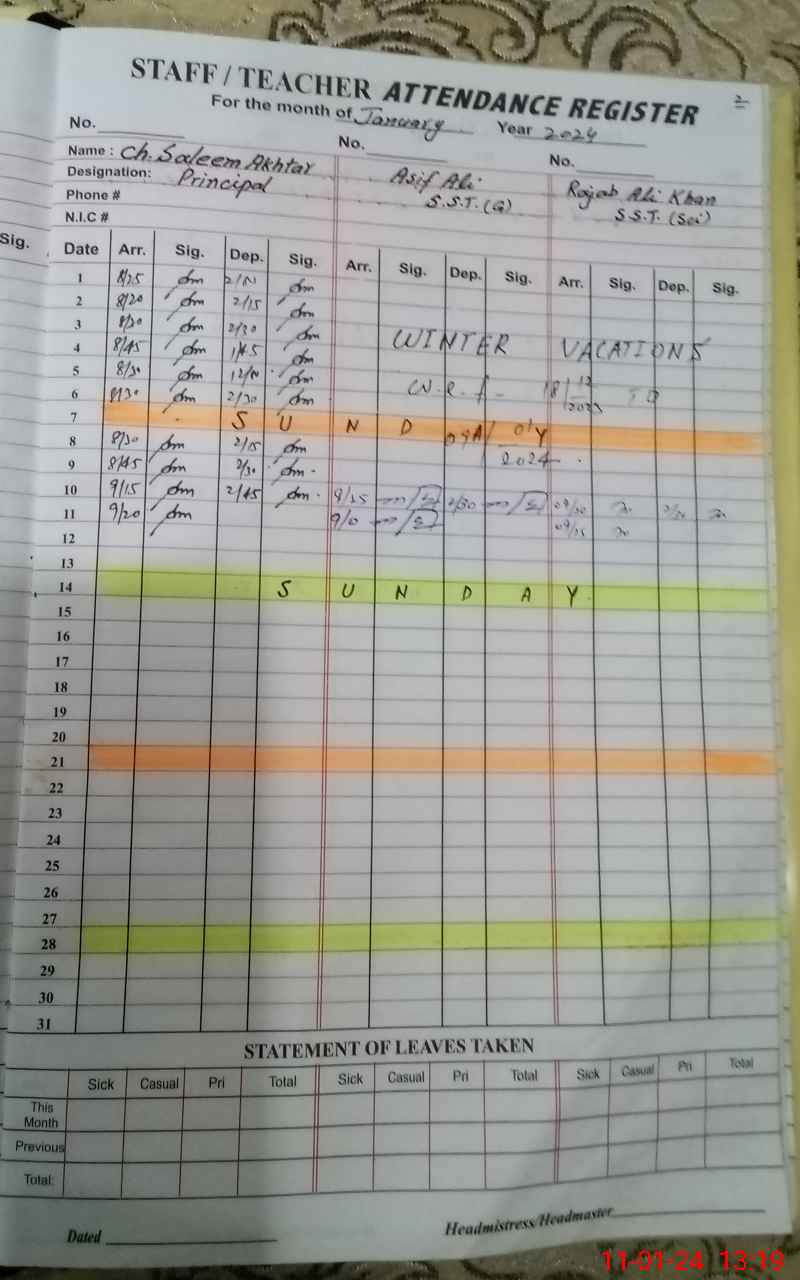 2
STAFF / TEACHER ATTENDANCE REGISTER
For the month of January Year 2024
No. No. No.
Name : Ch. Saleem Akhtar Asif Ali Rajab Ali Khan
Designation: Principal S.S.T. (G) S.S.T. (Sci)
Phone #
N.I.C #
Sig. Date Arr. Sig. Dep. Sig. Arr. Sig. Dep. Sig. Arr. Sig. Dep. Sig.
1 8/25
2 8/20 2/15
3 8/30 2/30
4 8/45 1/45 WINTER VACATIONS
5 8/30
6 8/30 2/30 W.e.f. 18/12/2023 TO
7 SUNDAY
8 8/30 2/15 2024
9 8/45 2/30
10 9/15 2/45 9/15 2/30 09/30
11 9/20 9/0 09/15
12
13
14 SUNDAY
15
16
17
18
19
20
21
22
23
24
25
26
27
28
29
30
31
STATEMENT OF LEAVES TAKEN
Sick Casual Pri Total Sick Casual Pri Total Sick Casual Pri Total
This Month
Previous
Total:
Dated Headmistress/Headmaster
11-01-24 13:19